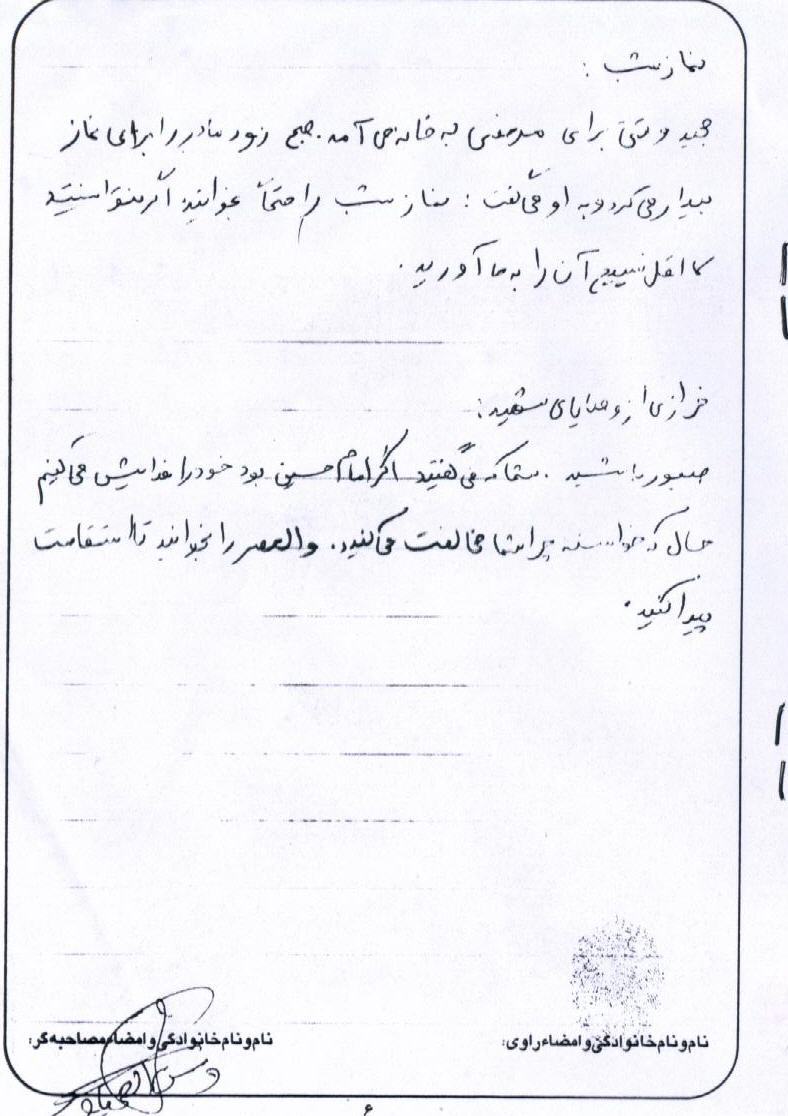 نماز شب :
مجید وقتی برای مرخصی به خانه می آمد . صبح زود مادر را برای نماز
بیدار می کرد و به او می گفت : نماز شب را حتماً بخوانید اگر نتوانستید
لااقل تسبیح آن را به جا آورید .
فرازی از وصایای شهید :
صبور باشید . شما که می گفتید اگر امام حسین بود خود را فدایش می کنیم
حال که خواسته چرا شما مخالفت می کنید . والعصر را بخوانید تا استقامت
پیدا کنید .
نام و نام خانوادگی و امضاء راوی:
نام و نام خانوادگی و امضاء مصاحبه گر:
۶